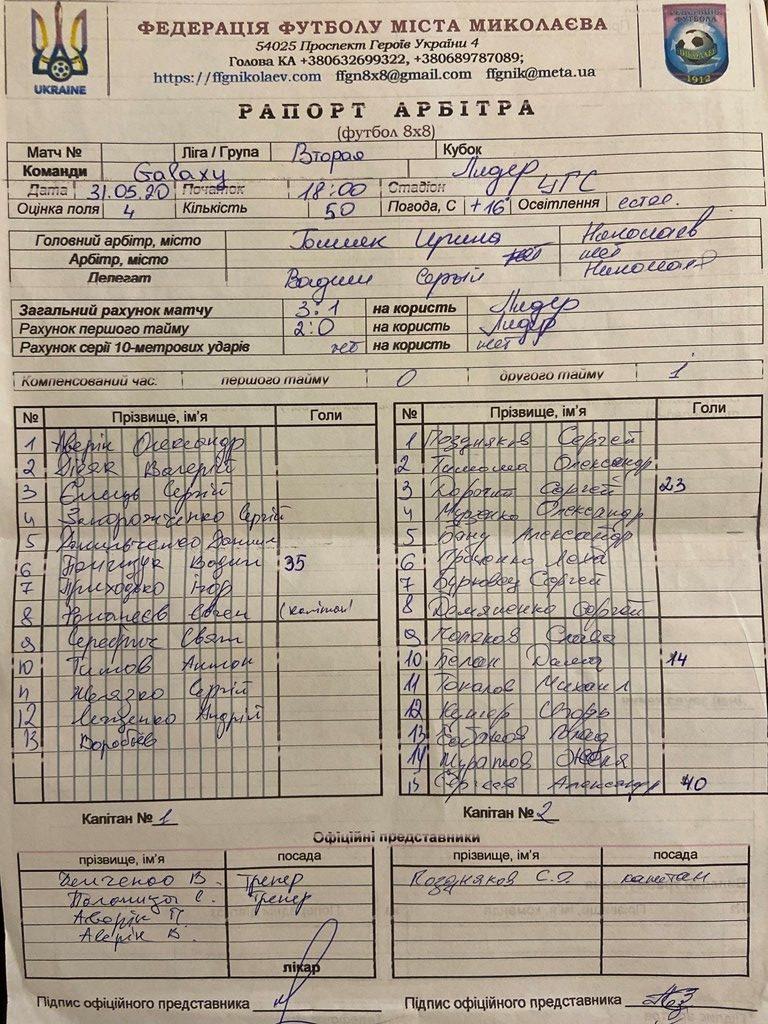 ФЕДЕРАЦІЯ ФУТБОЛУ МІСТА МИКОЛАЄВА
54025 Проспект Героїв України 4
Голова КА +380632699322, +380689787089;
https://ffgnikolaev.com ffgn8x8@gmail.com ffgnik@meta.ua
UKRAINE
1912
РАПОРТ АРБІТРА
(футбол 8х8)
Матч № Ліга / Група Вторая Кубок
Команди Galaxy Лидер
Дата 31.05.20 Початок 18:00 Стадіон ЦГС
Оцінка поля 4 Кількість 50 Погода, С +16 Освітлення естес.
Головний арбітр, місто Ирина Николаев
Арбітр, місто нет нет
Делегат Вадим Николаев
Загальний рахунок матчу 3:1 на користь Лидер
Рахунок першого тайму 2:0 на користь Лидер
Рахунок серії 10-метрових ударів нет на користь нет
Компенсований час: першого тайму 0 другого тайму 1
№ Прізвище, ім'я Голи № Прізвище, ім'я Голи
1 Аверін Олександр 1 Поздняков Сергей
2 Валерій 2 Тимошa Олександр
3 Ємець Сергій 3 Сергей 23
4 Запорожченко Сергій 4 Олександр
5 Данильченко Данил 5 Бану Александр
6 Вадим 35 6 Грищенко
7 Приходько Ігор 7 Сергей
8 Євген (капітан) 8 Демяненко Сергей
9 Свят 9 Поляков Слава
10 Тітов Антон 10 Белан 14
11 Желязко Сергій 11 Токалов Михаил
12 Андрій 12 Игорь
13 Воробйов 13 Влад
14 Муратов Женя
15 Сергеев Александр 40
Капітан № 1 Капітан № 2
Офіційні представники
прізвище, ім'я посада прізвище, ім'я посада
Демченко В. Тренер Поздняков С.О. капетан
С. Тренер
Аверін П.
Аверін В.
лікар
Підпис офіційного представника Підпис офіційного представника